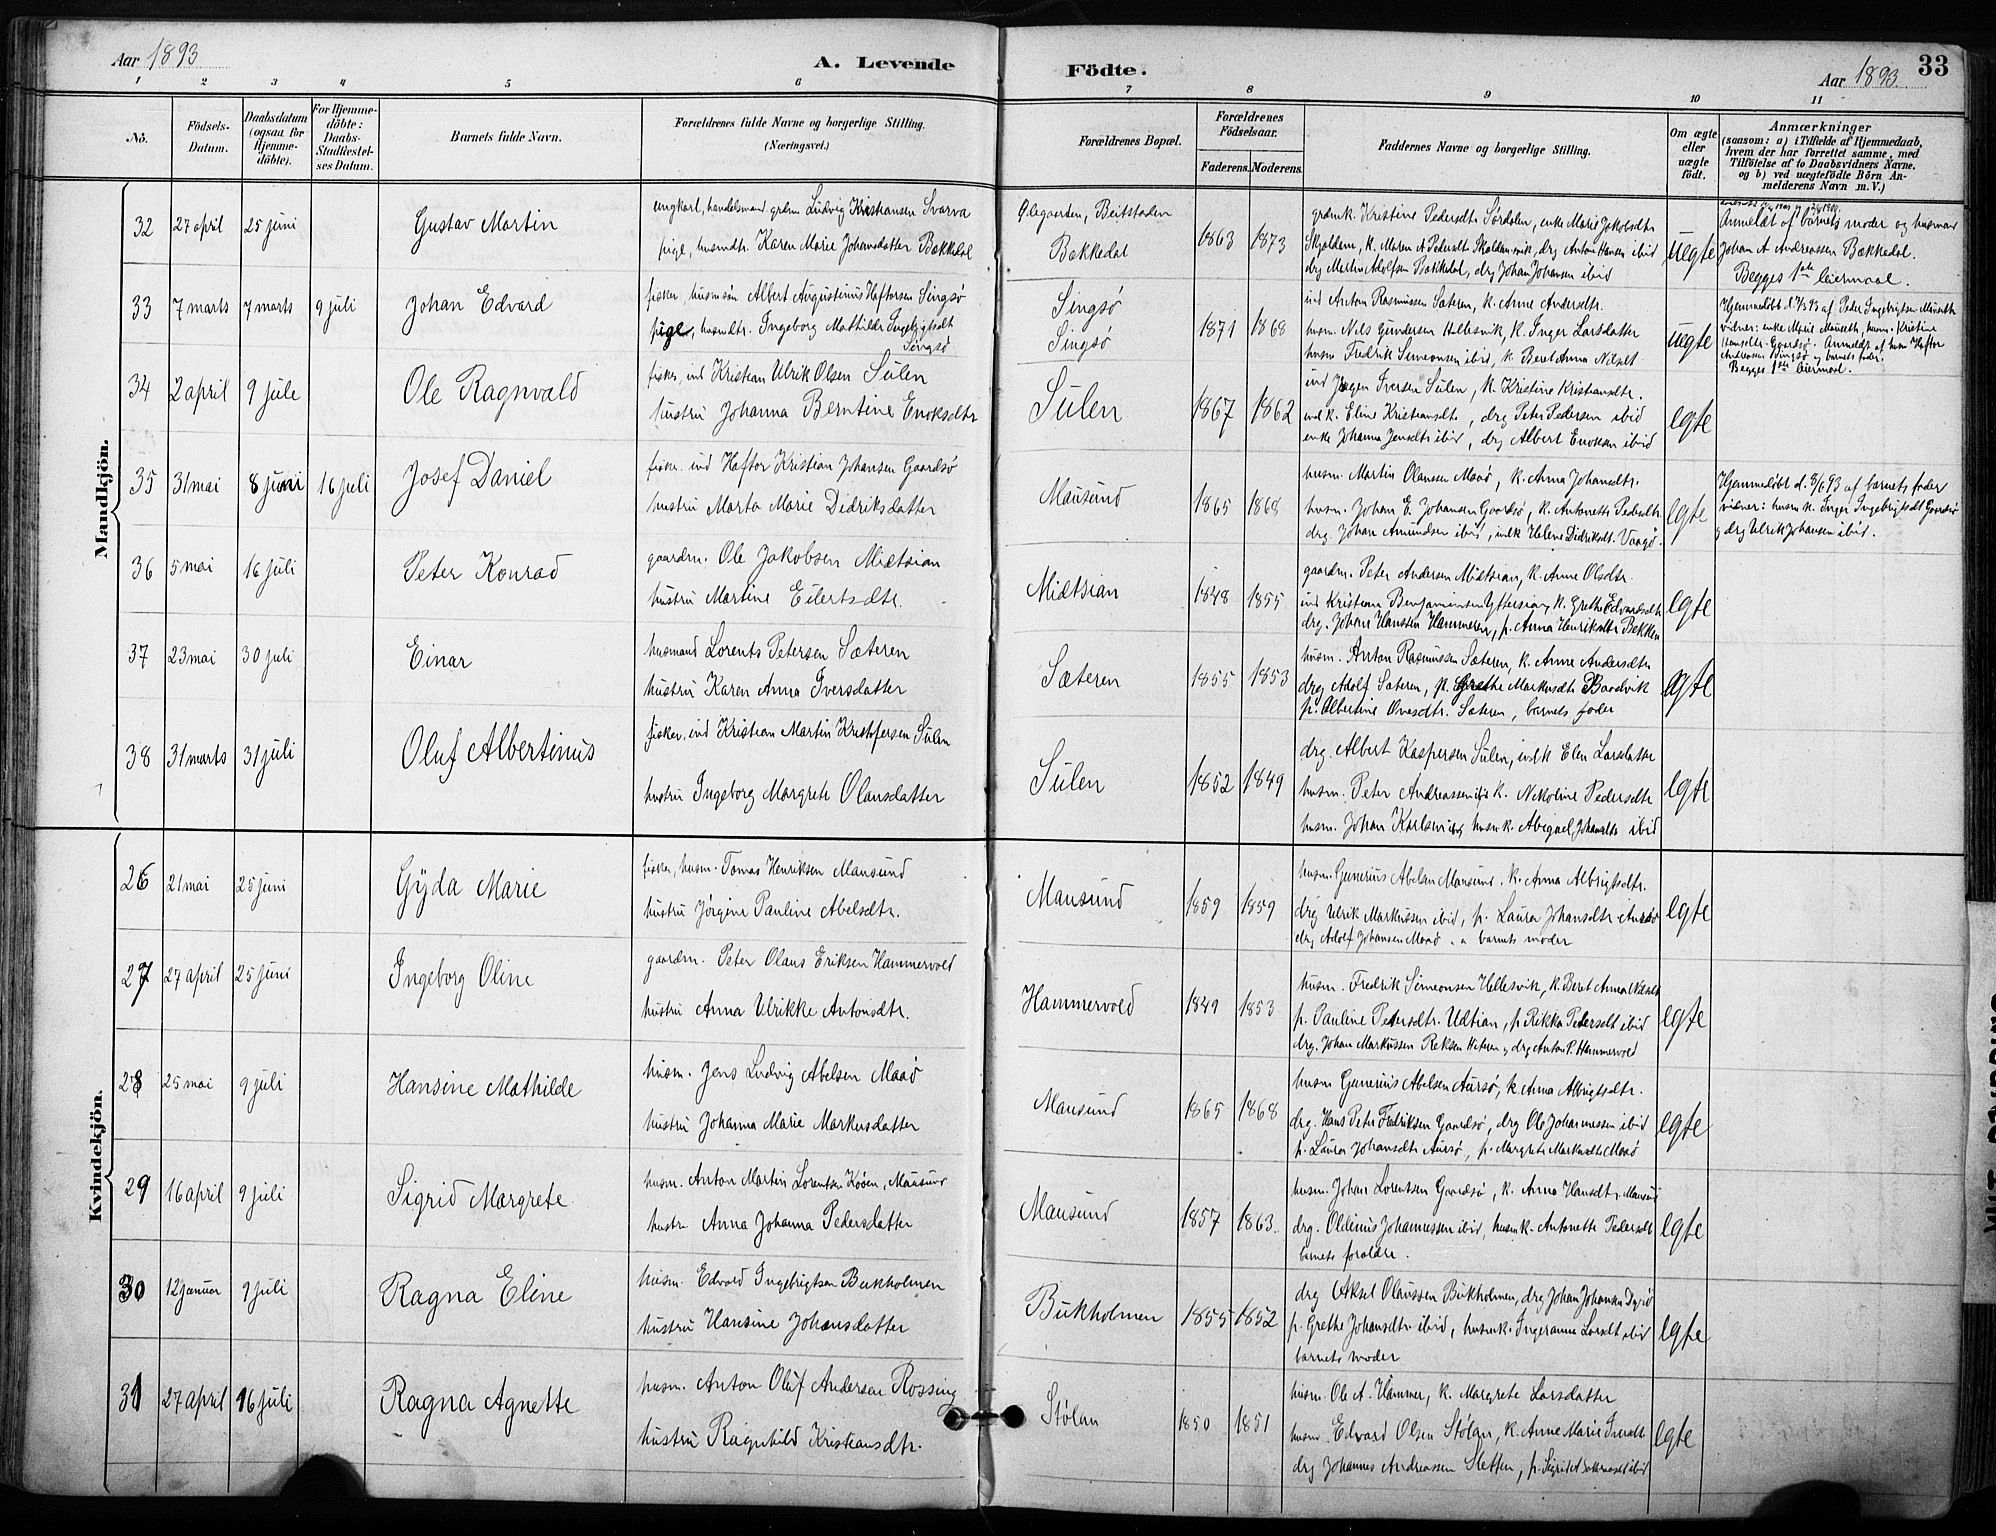 Aar 1893
A. Levende
Födte.
Aar 1893.
33
1 2 3 4 5 6 7 8 9 10 11
No.
Födsels-Datum.
Daabsdatum (ogsaa for Hjemmedöbte).
For Hjemmedöbte: Daabs-Stadfæstelses Datum.
Barnets fulde Navn.
Forældrenes fulde Navne og borgerlige Stilling. (Næringsvei.)
Forældrenes Bopæl.
Forældrenes Födselsaar.
Faderens. Moderens.
Faddernes Navne og borgerlige Stilling.
Om ægte eller uægte født.
Anmærkninger
(saasom: a) i Tilfælde af Hjemmedaab,
hvem der har forrettet samme, med
Tilföielse af to Daabsvidners Navne.
og b) ved uægtefödte Börn Anmelderens Navn m. V.)
Mandkjön.
32 27 april 25 juni Gustav Martin
ungkarl, handelsmand grdm Ludvig Kristiansen Svarva
pige, husmdtr. Karen Marie Johansdatter Bakkedal
Ølegaarden, Beitstaden
Bakkedal
1863 1873
grdmk. Kristine Pedersdtr Sørdalen, enke Marie Jakobsdtr
Skjoldem, k. Maren A Pedersdt Skaldensvik, drg Anton Hansen ibid
drg Martin Adolfsen Bakkedal, drg Johan Johansen ibid
uegte
Anmeldt af barnets moder og husmand
Johan A Andreassen Bakkedal.
Begges 1ste leiermaal.
33 7 marts 7 marts 9 juli Johan Edvard
fisker, husmsøn Albert Augustinus Haftorsen Singsø
pige, husmdtr. Ingeborg Mathilde Ingebrigtsdt
Singsø
Singsø
Singsø
1871 1868
ind Anton Rasmussen Sæteren, k. Anne Andersdtr.
husm. Nils Gundersen Hellesvik, k. Inger Larsdatter
husm Fredrik Simeonsen ibid, k. Beret Anna Nilsdt
uegte
Hjemmedöbt d. 7/3 93 af Peder Ingebrigtsen Mausund
vidner: enke Marie Mausund, husm. k. Kristine
Hansdtr. Gaardsø. Anmeldt af husm Haftor
Andreassen Singsø og barnets fader.
Begges 1ste leiermaal.
34 2 april 9 jule Ole Ragnvald
fisker, ind Kristian Ulrik Olsen Sulen
hustru Johanna Berntine Enoksdtr
Sulen
1867 1862
ind Jørgen Iversen Sulen, k. Kristine Kristiansdtr.
indk. Eline Kristiansdtr, drg Peter Pedersen ibid
enke Johanna Jensdtr ibid, drg Albert Enoksen ibid
egte
35 31 mai 8 juni 16 juli Josef Daniel
fisker. ind Haftor Kristian Johansen Gaardsø
hustru Marta Marie Didriksdatter
Mausund
1865 1868
husm. Martin Olaussen Maaø, k. Anna Johansdtr.
husm. Johan E. Johansen Gaardsø, k. Antonette Pedersdtr
drg. Johan Amundsen ibid, indk Helene Didriksdt. Vaagø.
egte
Hjemmedöbt d. 8/6 93 af barnets fader
vidner: husm k. Inger Ingebrigtsdt Gaardsø
og drg Ulrik Johansen ibid.
36 5 mai 16 juli Peter Konrad
gaardm. Ole Jakobsen Midtsian
hustru Martine Eilertsdtr.
Midtsian
1848 1855
gaardm. Peter Andersen Midtsian, k. Anne Olsdtr.
ind Kristian Benjaminsen Yttersian, k. Grethe Edvardsdtr
drg. Johan Hanssen Hammeren, p. Anna Henriksdtr Bakken
egte
37 23 mai 30 juli Einar
husmand Lorents Petersen Sæteren
hustru Karen Anna Iversdatter
Sæteren
1855 1853
husm. Anton Rasmussen Sæteren, k. Anne Andersdtr
drg Adolf Sæteren, p. Grethe Markusdtr Bardvik
p. Albertine Ovesdtr. Sæteren, barnets fader
egte
38 31 marts 31 juli Oluf Albertinus
fisker, ind Kristian Martin Kristofersen Sulen
hustru Ingeborg Margrete Olausdatter
Sulen
1852 1849
drg. Albert Kaspersen Sulen, indk Elen Larsdatter
husm. Peter Andreassen ibid k. Nikoline Pedersdtr
husm. Johan Karlsen ibid, husm k. Abigael Johansdtr ibid
egte
Kvindekjön.
26 21 mai 25 juni Gyda Marie
fisker, husm. Tomas Henriksen Mausund
hustru Jørgine Pauline Abelsdtr.
Mausund
1859 1859
husm. Gunerius Abelsen Mausund, k. Anna Albrigtsdtr.
drg Ulrik Markussen ibid, p. Laura Johansdtr Aursø
drg Adolf Johansen Maaø. a barnets moder
egte
27 27 april 25 juni Ingeborg Oline
gaardm. Peter Olaus Eriksen Hammervold
hustru Anna Ulrikke Antonsdtr.
Hammervold
1849 1853
husm. Fredrik Simeonsen Hellesvik, k. Beret Anna Nilsdt
p. Pauline Petersdtr. Udtian, p. Rikka Petersdt ibid
drg. Johan Markussen Reksen Hiteren, drg Anton P. Hammervold
egte
28 25 mai 9 juli Hansine Mathilde
husm. Jens Ludvig Abelsen Maaø
hustru Johanna Marie Markusdatter
Mausund
1865 1868
husm Gunerius Abelsen Aursø, k Anna Albrigtsdtr.
drg. Hans Peter Fredriksen Gaardsø, drg Ole Johannessen ibid
p. Laura Johansdtr Aursø, p. Margrete Markusdtr Maaø
egte
29 16 april 9 juli Sigrid Margrete
husm. Anton Martin Lorentsen Køøen, Mausund
hustru Anna Johanna Pedersdatter
Mausund
1857 1863.
husm. Johan Lorentsen Gaardsø, k. Anna Hansdtr. Mausund
drg. Oldinus Johannessen ibid, husmk. Antonette Pedersdt
barnets foraldre.
egte
30 12 januar 9 juli Ragna Eline
husm. Edvard Ingebrigtsen Bukholmen
hustru Hansine Johansdatter
Bukholmen
1855 1852
drg Aksel Olaussen Bukholmen, drg Johan Johansen Dyrø
p. Grethe Johansdtr ibid, husmk. Ingeranna Larsdt ibid
barnets moder
egte
31 27 april 16 juli Ragna Agnette
husm. Anton Oluf Andersen Rossing
hustru Ragnhild Kristiansdtr.
Stølan
1850 1851
husm. Ole A. Hammer, k. Margrete Larsdatter
husm. Edvard Olsen Stølan, k. Anne Marie Iversdt
drg Johannes Andreassen Sletten, p. Sigrid
egte